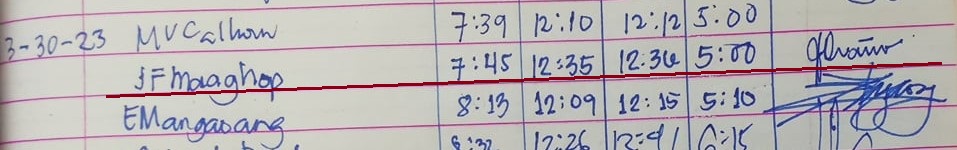 3-30-23 MVCalhow 7:39 12:10 12:12 5:00
JFMaaghop 7:45 12:35 12:36 5:00
EMangaoang 8:13 12:09 12:15 5:10
12:26